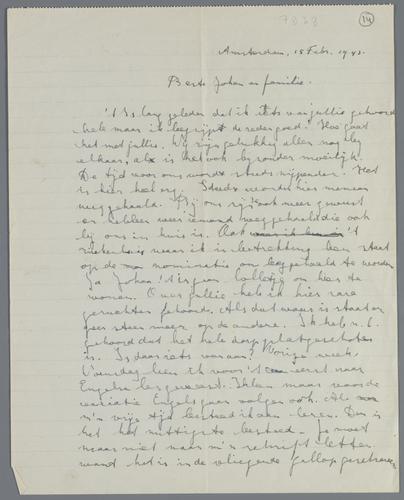 7323
14
Amsterdam, 15 Febr. 1943.
Beste Johan en familie.
't Is lang geleden dat ik iets van jullie gehoord
heb, maar ik begrijp de reden goed. Hoe gaat
het met jullie. Wij zijn gelukkig allen nog bij
elkaar, al is het ook bijzonder moeilijk.
De tijd voor ons wordt steeds nijpender. Het
is hier heel erg. Steeds worden hier mensen
weggehaald. Bij ons zijn ook weer geweest
en hebben weer iemand weggehaald die ook
bij ons in huis is. Ook 't
ziekenhuis waar ik in betrekking ben staat
op de nominatie om leeggehaald te worden
Ja Johan 't is geen lolletje om hier te
wonen. Over jullie heb ik hier rare
geruchten gehoord. Als dat waar is staat er
geen steen meer op de andere. Ik heb n.l.
gehoord dat het hele dorp platgeschoten
is. Is daar iets van aan? Vorige week
Dinsdag ben ik voor 't eerst naar
Engelse les geweest. Ik ben maar voor de
variatie Engels gaan volgen ook. Als
m'n vrije tijd besteed ik aan leren. Dan is
het het nuttigste besteed. Je moet
maar niet naar m'n schrift letten
want het is in de vliegende gallop geschreven